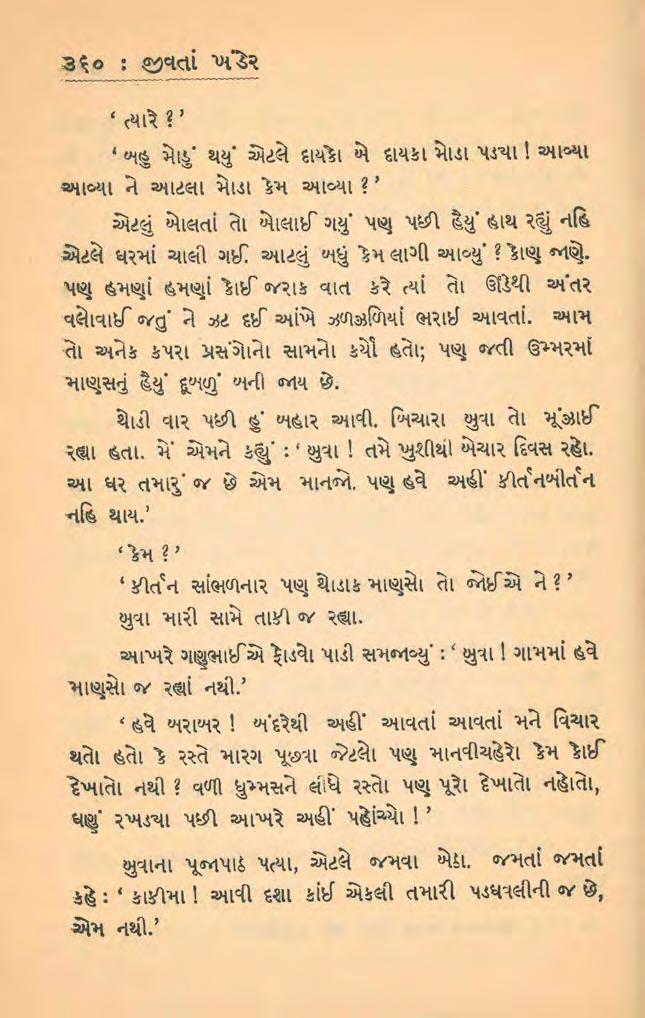 ૩૬૦ : જીવતાં ખંડેર
‘ ત્યારે ? ’
‘ બહુ મોડું થયું એટલે દાયકો બે દાયકા મોડા પડયા ! આવ્યા
આવ્યા ને આટલા મોડા કેમ આવ્યા ? ’
એટલું બોલતાં તો બોલાઈ ગયું પણ પછી હૈયું હાથ રહ્યું નહિ
એટલે ઘરમાં ચાલી ગઈ. આટલું બધું કેમ લાગી આવ્યું ? કોણ જાણે.
પણ હમણાં હમણાં કોઈ જરાક વાત કરે ત્યાં તો ઊંડેથી અંતર
વલોવાઈ જતું ને ઝટ દઈ આંખે ઝળઝળિયાં ભરાઈ આવતાં. આમ
તો અનેક કપરા પ્રસંગોનો સામનો કર્યો હતો; પણ જતી ઉમ્મરમાં
માણસનું હૈયું દૂબળું બની જાય છે.
થોડી વાર પછી હું બહાર આવી. બિચારા બુવા તો મૂંઝાઈ
રહ્યા હતા. મેં એમને કહ્યું : ‘ બુવા ! તમે ખુશીથી બેચાર દિવસ રહો.
આ ઘર તમારું જ છે એમ માનજો. પણ હવે અહીં કીર્તનબીર્તન
નહિ થાય.’
‘ કેમ ? ’
‘ કીર્તન સાંભળનાર પણ થોડાક માણસો તો જોઈએ ને ? ’
બુવા મારી સામે તાકી જ રહ્યા.
આખરે ગણુભાઈએ ફોડવો પાડી સમજાવ્યું : ‘ બુવા ! ગામમાં હવે
માણસો જ રહ્યાં નથી.’
‘ હવે બરાબર ! બંદરેથી અહીં આવતાં આવતાં મને વિચાર
થતો હતો કે રસ્તે મારગ પૂછવા જેટલો પણ માનવીચહેરો કેમ કોઈ
દેખાતો નથી ? વળી ધુમ્મસને લીધે રસ્તો પણ પૂરો દેખાતો નહોતો,
ઘણું રખડયા પછી આખરે અહીં પહોંચ્યો ! ’
બુવાના પૂજાપાઠ પત્યા, એટલે જમવા બેઠા. જમતાં જમતાં
કહે : ‘ કાકીમા ! આવી દશા કાંઈ એકલી તમારી પડઘવલીની જ છે,
એમ નથી.’